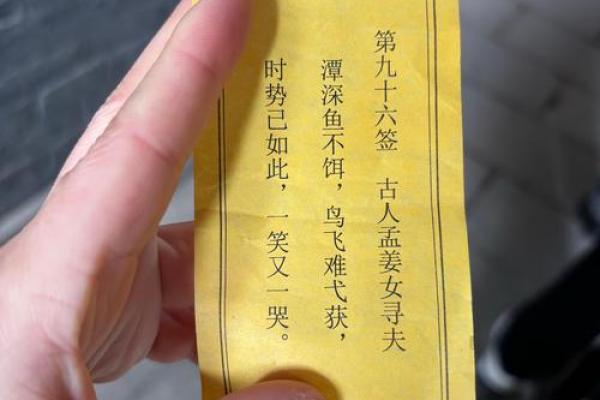 第九十六签 古人孟姜女寻夫
潭深鱼不饵，鸟飞难弋获，
时势已如此，一笑又一哭。